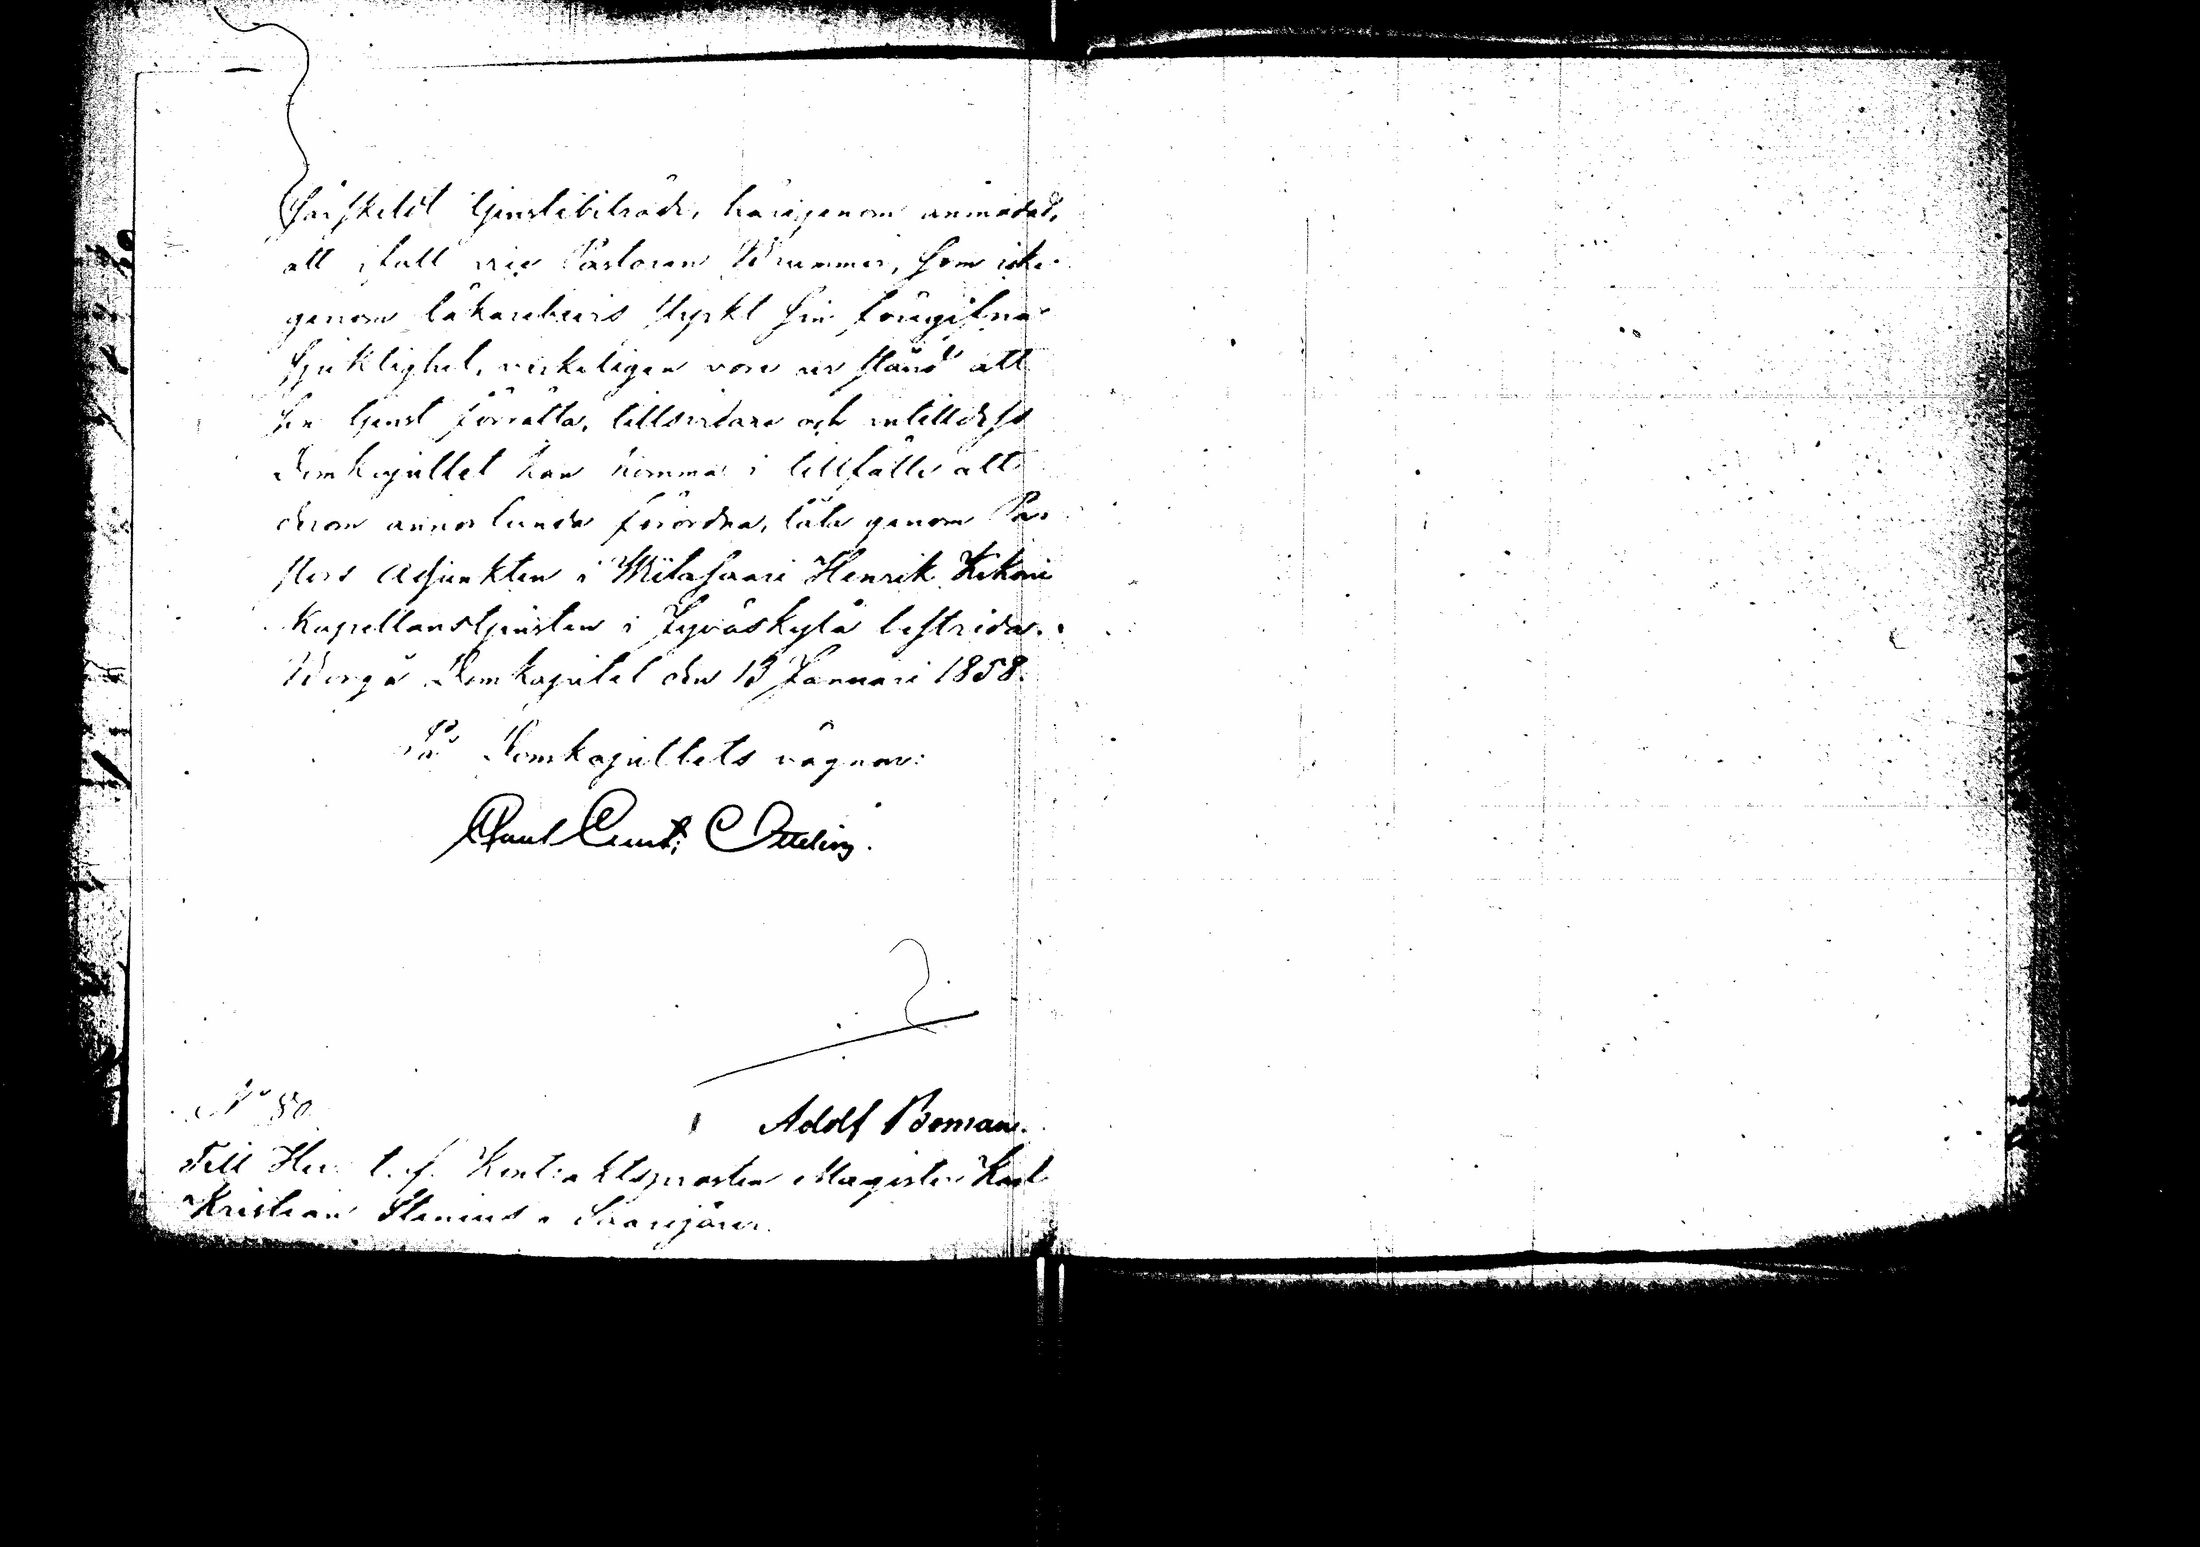 särskeldt tjenstebiträde, härigenom anmodad,
att ifall vice Pastoren Brummer, som icke
genom läkarebevis styrkt sin föregifna
sjuklighet, verkeligen vore ur stånd att
sin tjenst förrätta, tillsvidare och intilldess
Domkapitlet kan komma i tillfälle att
derom annorlunda förordna, låta genom Pa-
stors Adjunkten i Wiitasaari Henrik Kekoni
Kapellanstjensten i Jyväskylä bestridas.
Borgå Domkapitel den 13 Januari 1858.
På Domkapitlets vägnar:
Carl Gust: Ottelin.
No 80.
Adolf Boman.
Till Herr t. f. Kontraktsprosten Magister Karl
Kristian Stenius i Saarijärvi.